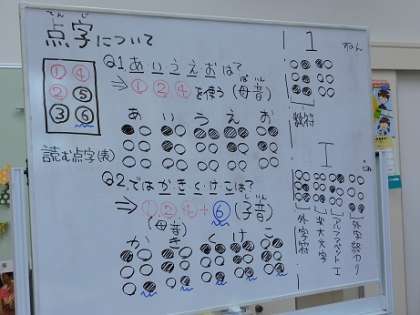 点字について
てんじ
① ④
② ⑤
③ ⑥
読む点字(表)
Q1 あ、い、う、え、おは?
⇒ ① ② ④ を使う (母音)
ぼいん
あ い う え お
Q2. では か・き・く・け・こは?
⇒ ①,②,④ + ⑥ (子音)
(母音)
か き く け こ
1 1
数符
I
外字符
大文字
アルファベット I
外字終わり